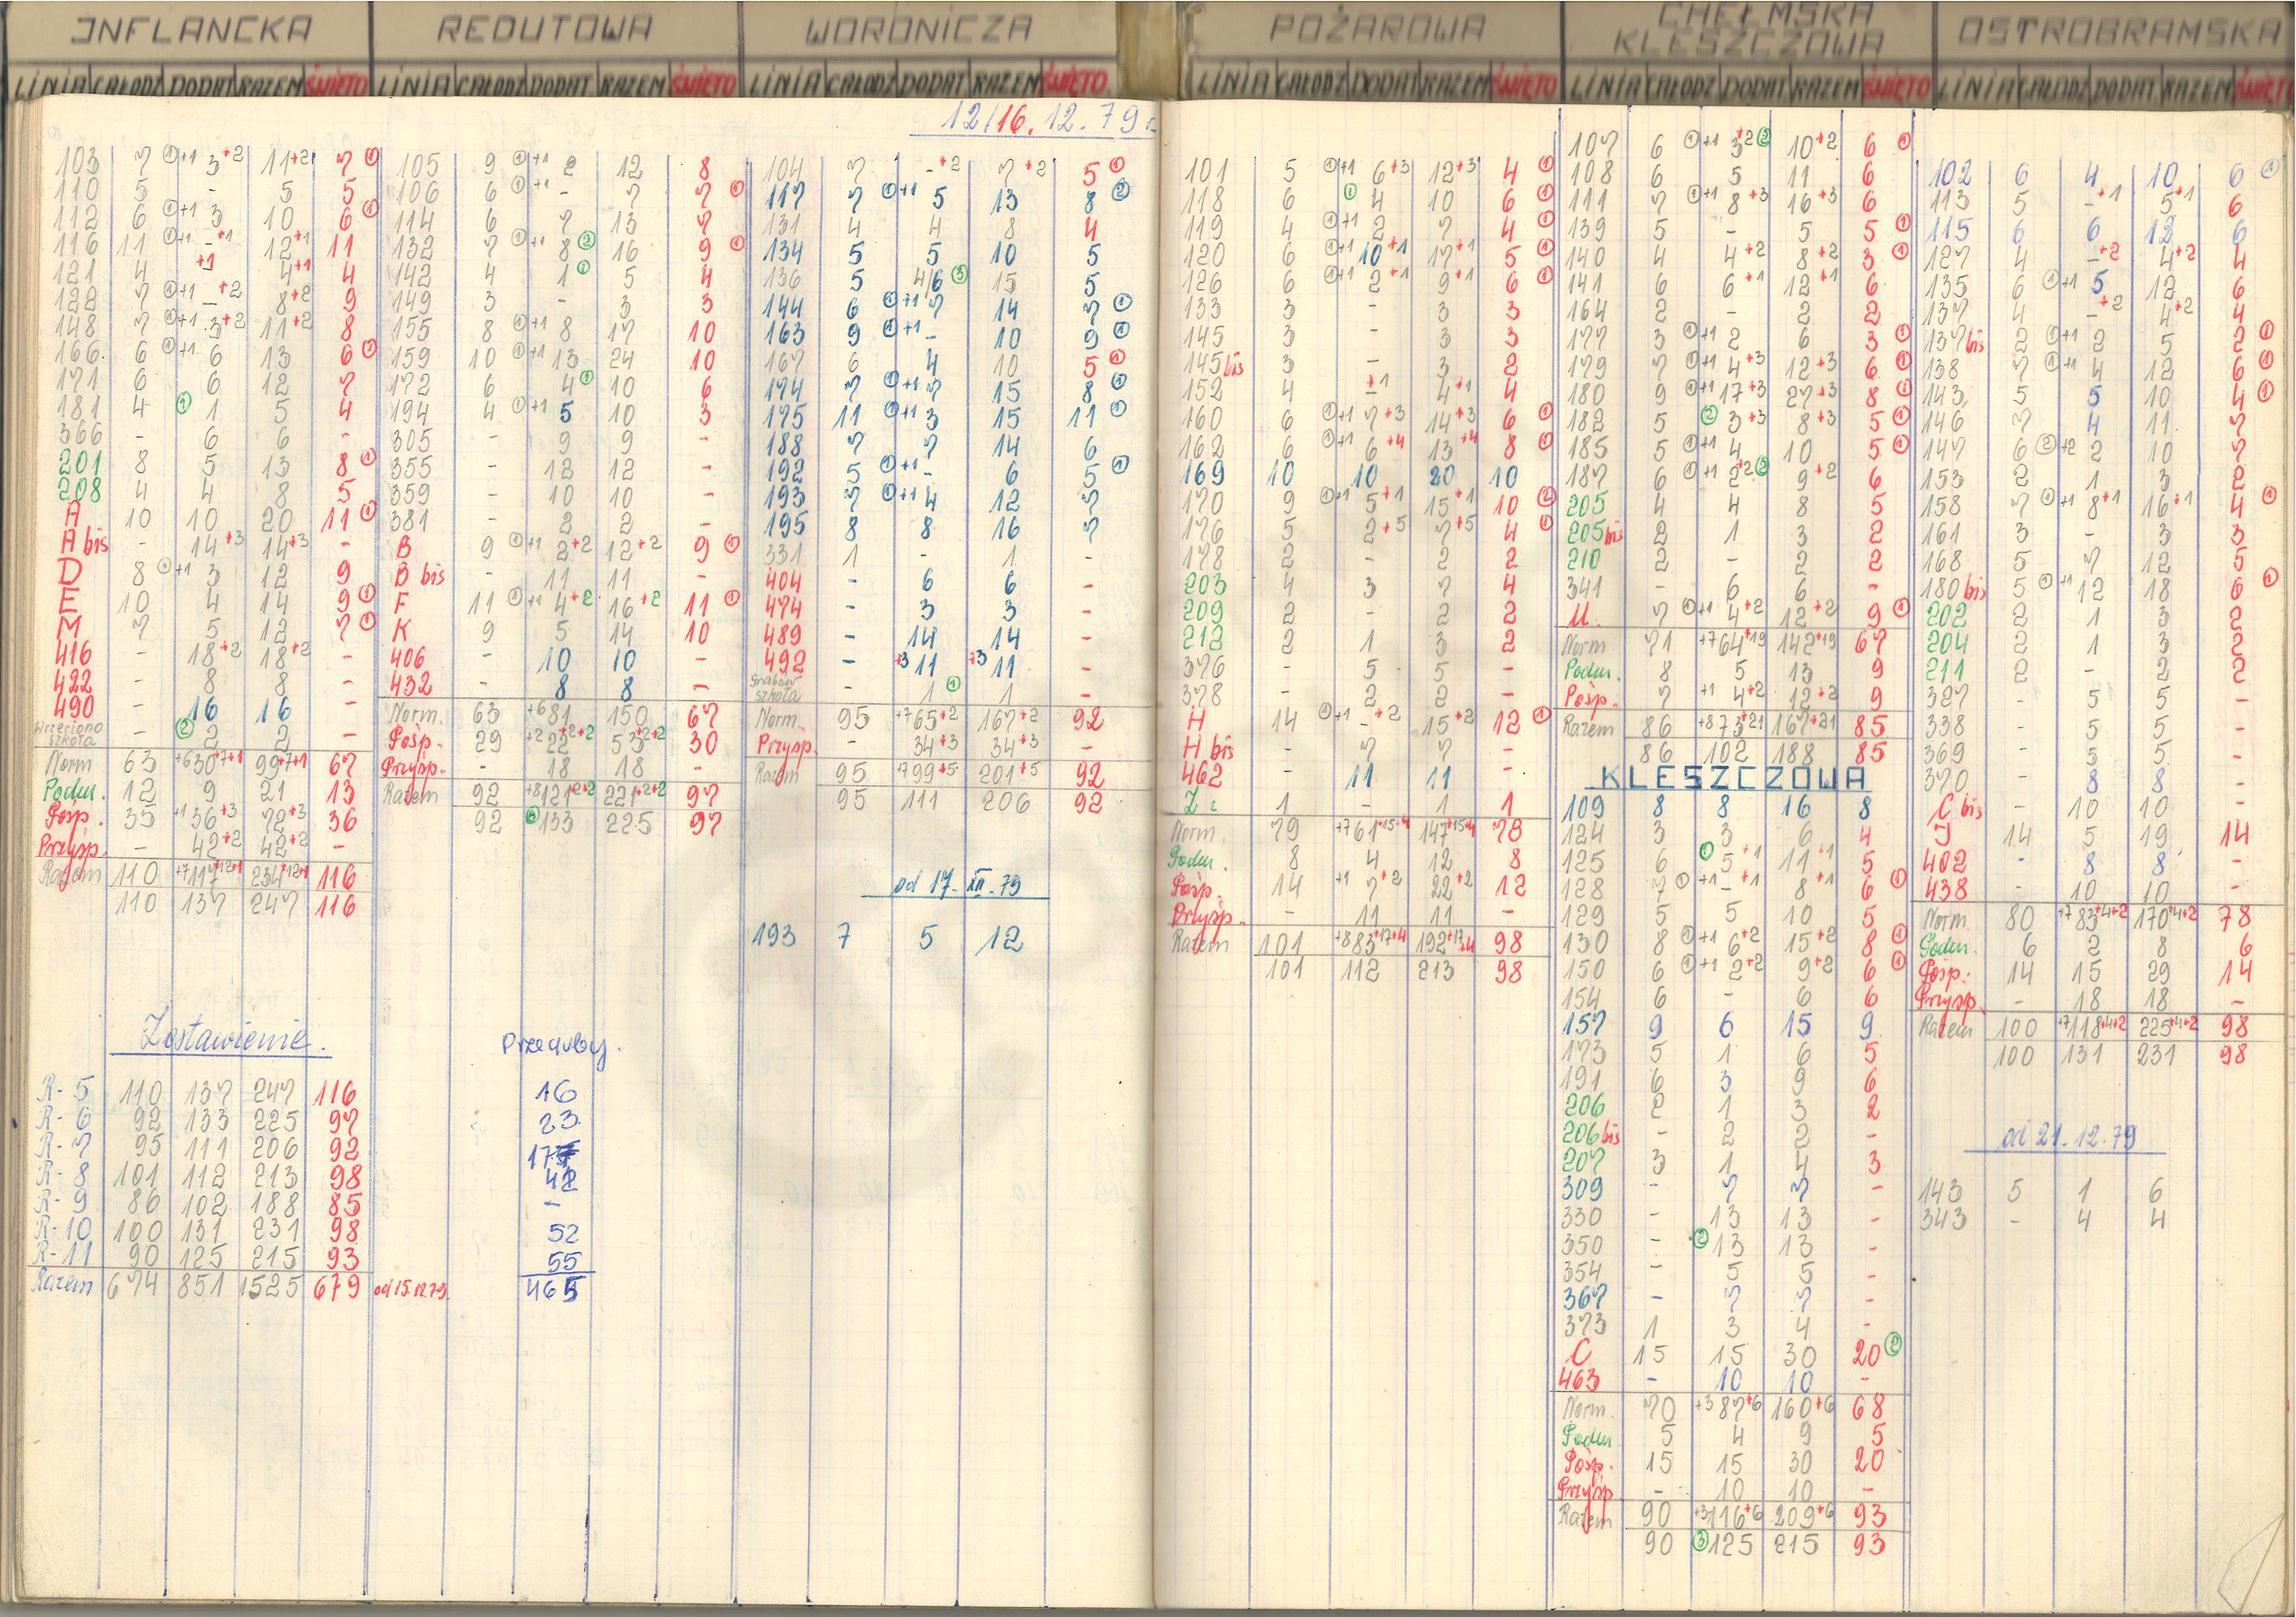 INFLANCKA
LINIA CAŁODZ DODAT RAZEM ŚWIĘTO
103 7 ①+1 3+2 11+2 7 ①
110 5 - 5 5
112 6 ①+1 3 10 6 ①
116 11 ①+1 -+1 12+1 11
121 4 +1 4+1 4
122 7 ①+1 -+2 8+2 9
148 7 ①+1 3+2 11+2 8
166 6 ①+1 6 13 6 ②
171 6 6 12 7
181 4 ① 1 5 4
366 - 6 6 -
201 8 5 13 8 ①
208 4 4 8 5
A 10 10 20 11 ①
A bis - 14+3 14+3 -
D 8 ①+1 3 12 9
E 10 4 14 9 ①
M 7 5 12 7 ①
416 - 18+2 18+2 -
422 - 8 8 -
490 - 16 16 -
Wrzeciono szkoła - ② 2 2 -
Norm 63 +6 30+7+1 99+7+1 67
Podm. 12 9 21 13
Pośp. 35 +1 36+3 72+3 36
Przysp. - 42+2 42+2 -
Razem 110 +7 117+12+1 234+12+1 116
110 137 247 116
Zestawienie.
R-5 110 137 247 116
R-6 92 133 225 97
R-7 95 111 206 92
R-8 101 112 213 98
R-9 86 102 188 85
R-10 100 131 231 98
R-11 90 125 215 93
Razem 674 851 1525 679 od 15.12.79.
REDUTOWA
LINIA CAŁODZ DODAT RAZEM ŚWIĘTO
105 9 ①+1 2 12 8
106 6 ①+1 - 7 7 ①
114 6 7 13 7
132 7 ①+1 8 ② 16 9 ①
142 4 1 ① 5 4
149 3 - 3 3
155 8 ①+1 8 17 10
159 10 ①+1 13 24 10
172 6 4 ① 10 6
194 4 ①+1 5 10 3
305 - 9 9 -
355 - 12 12 -
359 - 10 10 -
381 - 2 2 -
B 9 ①+1 2+2 12+2 9 ①
B bis - 11 11 -
F 11 ①+1 4+2 16+2 11 ①
K 9 5 14 10
406 - 10 10 -
432 - 8 8 -
Norm. 63 +6 81 150 67
Pośp. 29 +2 22+2+2 53+2+2 30
Przysp. - 18 18 -
Razem 92 +8 121+2+2 221+2+2 97
92 133 225 97
Przeguby.
16
23
17
42
-
52
55
465
WORONICZA
LINIA CAŁODZ DODAT RAZEM ŚWIĘTO
12/16.12.79 r.
104 7 -+2 7+2 5 ①
117 7 ①+1 5 13 8 ②
131 4 4 8 4
134 5 5 10 5
136 5 4/6 ③ 15 5
144 6 ①+1 7 14 7 ①
163 9 ①+1 - 10 9 ①
167 6 4 10 5 ①
174 7 ①+1 7 15 8 ①
175 11 ①+1 3 15 11 ①
188 7 7 14 6
192 5 ①+1 - 6 5 ①
193 7 ①+1 4 12 7
195 8 8 16 7
331 1 - 1 -
404 - 6 6 -
474 - 3 3 -
489 - 14 14 -
492 - +3 11 +3 11 -
Grabów szkoła - 1 ① 1 -
Norm. 95 +7 65+2 167+2 92
Przysp. - 34+3 34+3 -
Razem 95 +7 99+5 201+5 92
95 111 206 92
od 17.XII.79
193 7 5 12
POŻAROWA
LINIA CAŁODZ DODAT RAZEM ŚWIĘTO
101 5 ①+1 6+3 12+3 4 ①
118 6 ① 4 10 6 ①
119 4 ①+1 2 7 4 ①
120 6 ①+1 10+1 17+1 5 ①
126 6 ①+1 2+1 9+1 6 ①
133 3 - 3 3
145 3 - 3 3
145bis 3 - 3 2
152 4 -+1 4+1 4
160 6 ①+1 7+3 14+3 6 ①
162 6 ①+1 6+4 13+4 8 ①
169 10 10 20 10
170 9 ①+1 5+1 15+1 10 ②
176 5 2+5 7+5 4 ①
178 2 - 2 2
203 4 3 7 4
209 2 - 2 2
212 2 1 3 2
376 - 5 5 -
378 - 2 2 -
H 14 ①+1 -+2 15+2 12 ①
H bis - 7 7 -
462 - 11 11 -
Z 1 - 1 1
Norm. 79 +7 61+15+4 147+15+4 78
Podm. 8 4 12 8
Pośp. 14 +1 7+2 22+2 12
Przysp. - 11 11 -
Razem 101 +8 83+17+4 192+17+4 98
101 112 213 98
CHEŁMSKA
KLESZCZOWA
LINIA CAŁODZ DODAT RAZEM ŚWIĘTO
107 6 ①+1 3+2 ② 10+2 6 ①
108 6 5 11 6
111 7 ①+1 8+3 16+3 6
139 5 - 5 5 ①
140 4 4+2 8+2 3 ①
141 6 6+1 12+1 6
164 2 - 2 2
177 3 ①+1 2 6 3 ①
179 7 ①+1 4+3 12+3 6 ①
180 9 ①+1 17+3 27+3 8 ①
182 5 ② 3+3 8+3 5 ①
185 5 ①+1 4 10 5 ①
187 6 ①+1 2+2 ② 9+2 6
205 4 4 8 5
205bis 2 1 3 2
210 2 - 2 2
341 - 6 6 -
U. 7 ①+1 4+2 12+2 9 ①
Norm 71 +7 64+19 142+19 67
Podm. 8 5 13 9
Pośp. 7 +1 4+2 12+2 9
Razem 86 +8 73+21 167+21 85
86 102 188 85
KLESZCZOWA
109 8 8 16 8
124 3 3 6 4
125 6 5+1 11+1 5
128 7 ①+1 -+1 8+1 6 ①
129 5 5 10 5
130 8 ①+1 6+2 15+2 8 ①
150 6 ①+1 2+2 9+2 6 ①
154 6 - 6 6
157 9 6 15 9
173 5 1 6 5
191 6 3 9 6
206 2 1 3 2
206bis - 2 2 -
207 3 1 4 3
309 - 7 7 -
330 - 13 13 -
350 - ② 13 13 -
354 - 5 5 -
367 - 7 7 -
373 1 3 4 -
C 15 15 30 20 ②
463 - 10 10 -
Norm. 70 +3 87+6 160+6 68
Podm 5 4 9 5
Pośp. 15 15 30 20
Przysp - 10 10 -
Razem 90 +3 116+6 209+6 93
90 ③ 125 215 93
OSTROBRAMSKA
LINIA CAŁODZ DODAT RAZEM ŚWIĘT
102 6 4 10 6 ①
113 5 -+1 5+1 6
115 6 6 12 6
127 4 -+2 4+2 4
135 6 ①+1 5 12 6
137 4 -+2 4+2 4
137bis 2 ①+1 2 5 2 ①
138 7 ①+1 4 12 6 ①
143 5 5 10 4 ①
146 7 4 11 7
147 6 ②+2 2 10 7
153 2 1 3 2
158 7 ①+1 8+1 16+1 4 ①
161 3 - 3 3
168 5 7 12 5
180bis 5 ①+1 12 18 6 ①
202 2 1 3 2
204 2 1 3 2
211 2 - 2 2
327 - 5 5 -
338 - 5 5 -
369 - 5 5 -
370 - 8 8 -
C bis - 10 10 -
J 14 5 19 14
402 - 8 8 -
438 - 10 10 -
Norm 80 +7 83+4+2 170+4+2 78
Podm. 6 2 8 6
Pośp. 14 15 29 14
Przysp - 18 18 -
Razem 100 +7 118+4+2 225+4+2 98
100 131 231 98
od 21.12.79
143 5 1 6
343 - 4 4